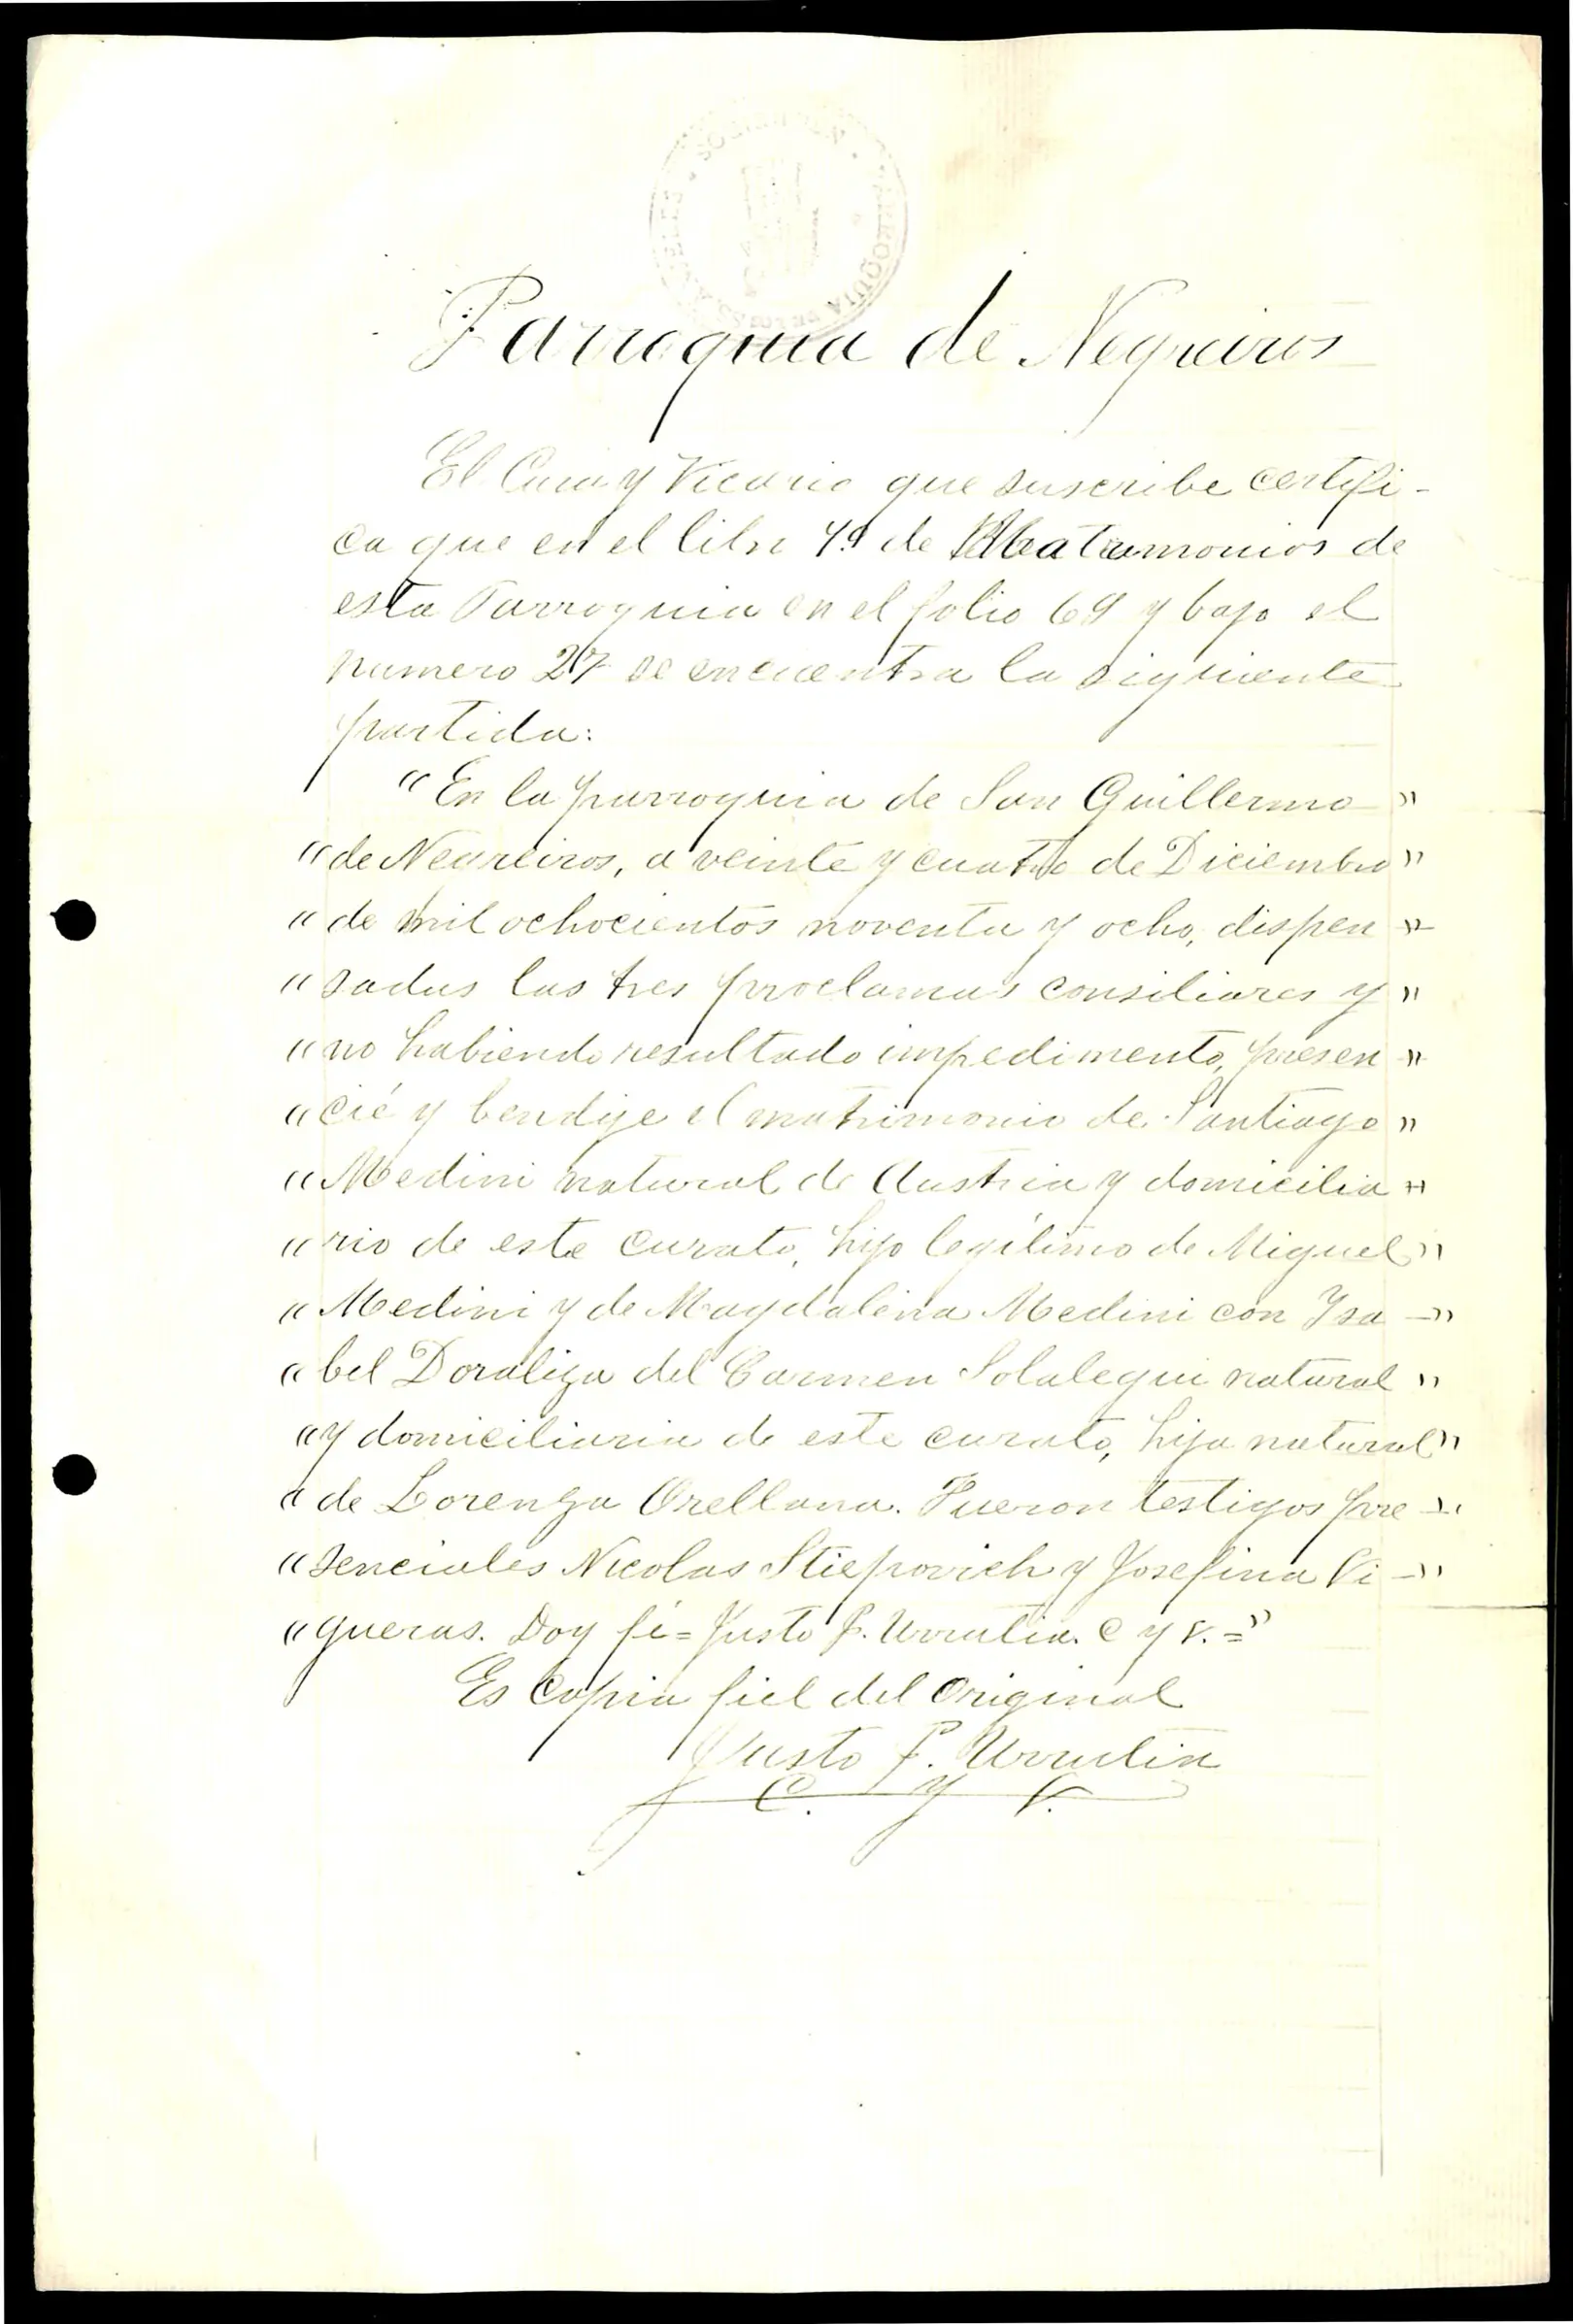 PARROQUIA
Parroquia de Negreiros
El Cura y Vicario que suscribe certifi-
ca que en el libro 4º de Matrimonios de
esta Parroquia en el folio 69 y bajo el
numero 27 se encuentra la siguiente
partida:
“En la parroquia de San Guillermo ”
“de Negreiros, a veinte y cuatro de Diciembre”
“de mil ochocientos noventa y ocho, dispen-”
“sadas las tres proclamas consiliares y”
“no habiendo resultado impedimento, presen-”
“cié y bendije el matrimonio de Santiago”
“Medini natural de Austria y domicilia-”
“rio de este curato, hijo legítimo de Miguel”
“Medini y de Magdalena Medini con Ysa-”
“bel Doraliza del Carmen Solalegui natural”
“y domiciliaria de este curato, hija natural”
“de Lorenza Orellana. Fueron testigos pre-”
“senciales Nicolas Stiepovich y Josefina Vi-”
“gueras. Doy fé= Justo P. Urrutia. C y V.=”
Es copia fiel del original
Justo P. Urrutia
C. y V.